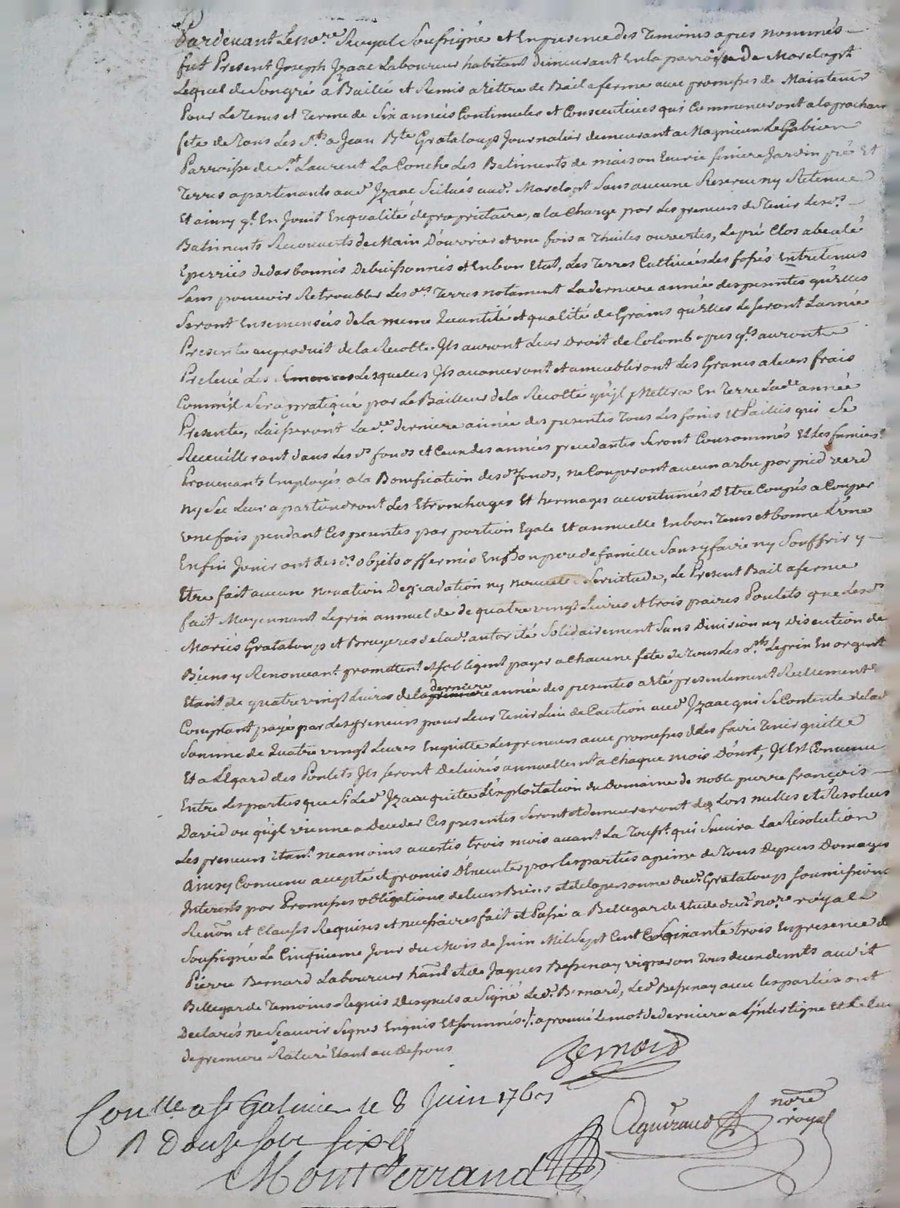 Pardevant Le no.re Royal Soussigné et En presence des Temoins apres nommés
fut Present Joseph Izaac Laboureur habitant demeurant En la parroisse de Marclopt
Lequel de Son gré à Baillé et Remis a tittre de Bail a ferme avec promesses de Maintenir
Pour Le Tems et Terme de Six années Continuelles et Consecutives qui Commenceront a la prochaine
fete de Tous Les S.ts a Jean B.te Grataloup Journalier demeurant a Magnieux Le Gabion
Parroisse de S.t Laurent La Conche Les Batiments de maison Ecurie feniere Jardin prés Et
Terres apartenants aud.t Izaac Scitués aud.t Marclopt Sans aucune Reserve ny Retenue
Et ainsy q.l En Jouit En qualité de propriétaire, a la Charge par Les preneurs de Tenir Les d.s
Batiments Recouverts de Main D'ouvrier et une fois a Thuiles ouvertes, Le pré Clos abecalé
Eperriés dedarbonnés Debuissonnés et En bon Etat, Les Terres Cultivées Les fossés Entretenus
Sans pouvoir Retroubler Les d.es Terres notament La derniere année des presentes qu'elles
Seront Ensemensés de la meme Quantité et qualité de Grains qu'elles Le seront L'année
Presente au produit de la Recolte Ils auront Leur Droit de Colomb apres q.ls auront
Prelevé Les Semences Lesquelles Ils avanceront et ameubleront Les Grains a leurs frais
Comm'il Sera pratiqué par Le Bailleur de la Recolte qu'il Mettra En Terre Lad.e année
Presente, Laisseront La d.e derniere année des presentes Tous Les foins Et Paillis qui Se
Receuilleront dans Les d.s fonds et Ceux des années precedantes Seront Consommés Et Les fumiers
Provenants Employés a la Bonification des d.s fonds, ne Couperont aucun arbre par pied verd
ny Sec Leur apartiendront Les Etronchages Et hermages accoutumés D'Etre Coupés a Couper
une fois pendant Ces presentes par portion Egale Et annuelle En bon Tems et bonne Lune
Enfin Jouiront des d.s objets affermés En bon pere de famille Sans y faire ny Souffrir y
Etre fait aucune novation Degradation ny nouvelle Servitude, Le Present Bail a ferme
fait Moyennant Le prix annuel de de quatre vingt Livres et trois paires Poulets que Les d.s
Mariés Grataloup et Bruyeres de la d.e autorités Solidairement Sans Division ny discution de
Biens y Renonceant promettent et s'obligent payer a Chacune fete de Tous Les S.ts Le prix En argent
Etant de quatre vingt Livres de la premiere derniere année des presentes a été presentement Reellement
Comptant payé par Les preneurs pour Leur Tenir Lieu de Caution aud.t Izaac qui Se Contente de lad.e
Somme de Quatre vingt Livres En quitte Les preneurs aux promesses de Les faire Tenir quittes
Et a L'Egard des Poulets Ils Seront Delivrés annuellement a Chaque mois D'aout, Il Est Convenu
Entre Les parties que Si Led.t Izaac quitte L'Exploitation du Domaine de noble pierre françois
David ou qu'il vienne a Deceder Ces presentes Seront et demeureront de Lors nulles et Resolues
Les preneurs Etant neamoins avertis trois mois avant La Tous.t qui Suivra La Resolution
ainsy Convenu accepté et promis D'Executer par les parties a peine de Tous Depens Domages
Interets par Promesses obligations de leurs Biens et de la personne dud.t Grataloup Soumissions
Renon et Clauses Requises et necessaires fait et Passé a Bellegarde Etude dud.t no.re royal
Soussigné Le Cinquieme Jour du Mois de Juin Mil Sept Cent Soixante trois En presence de
Pierre Bernard Laboureur hab.nt et de Jaques Bessenay vigneron Tous deux dem.ts audit
Bellegarde Temoins Requis Desquels a Signé Led.t Bernard, Led.t Bessenay avec Les parties ont
Declarés ne Scavoir Signer Enquis Et Sommés ./. aprouvé Le mot de derniere a L'interligne Et Le Lieu
de premiere Raturé Etant au Dessous
Bernard
Con.lle a St Galmier le 8 Juin 1763
R Douse sols six d
Montferrand
Aguiraud no.re royal